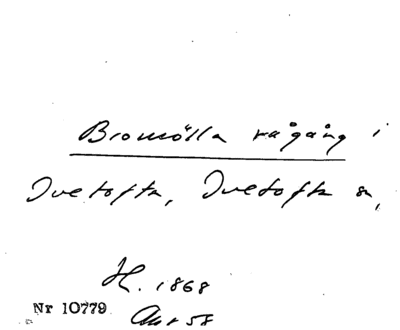 Bromölla rågång i
Ivetofta, Ivetofta sn,
H. 1868
Nr 10779
Akt 58